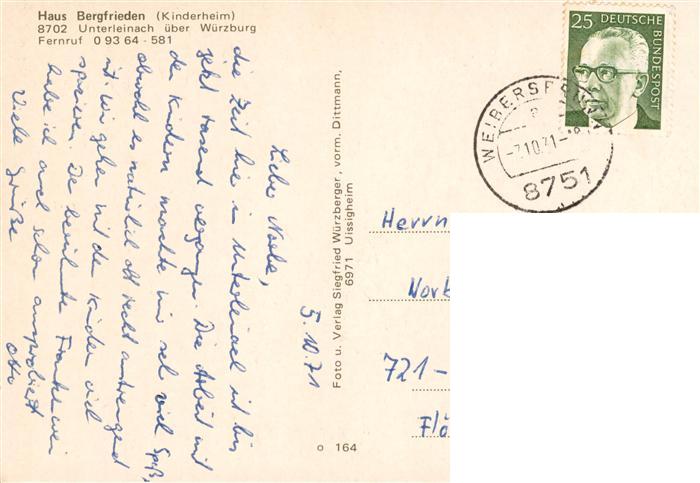 Haus Bergfrieden (Kinderheim)
8702 Unterleinach über Würzburg
Fernruf 0 93 64 - 581
25 DEUTSCHE BUNDESPOST
-7.10.71-
8751
5.10.71
die Zeit hier in Unterleinach ist bis
jetzt rasend vergangen. Die Arbeit mit
den Kindern machte mir sehr viel Spaß,
obwohl es natürlich oft recht anstrengend
ist. Wir gehen mit den Kindern viel
spazieren. Den berühmten Frankenwein
habe ich auch schon ausprobiert
Viele Grüße
Foto u. Verlag Siegfried Würzberger, vorm. Dittmann,
6971 Uissigheim
o 164
Herrn
721-